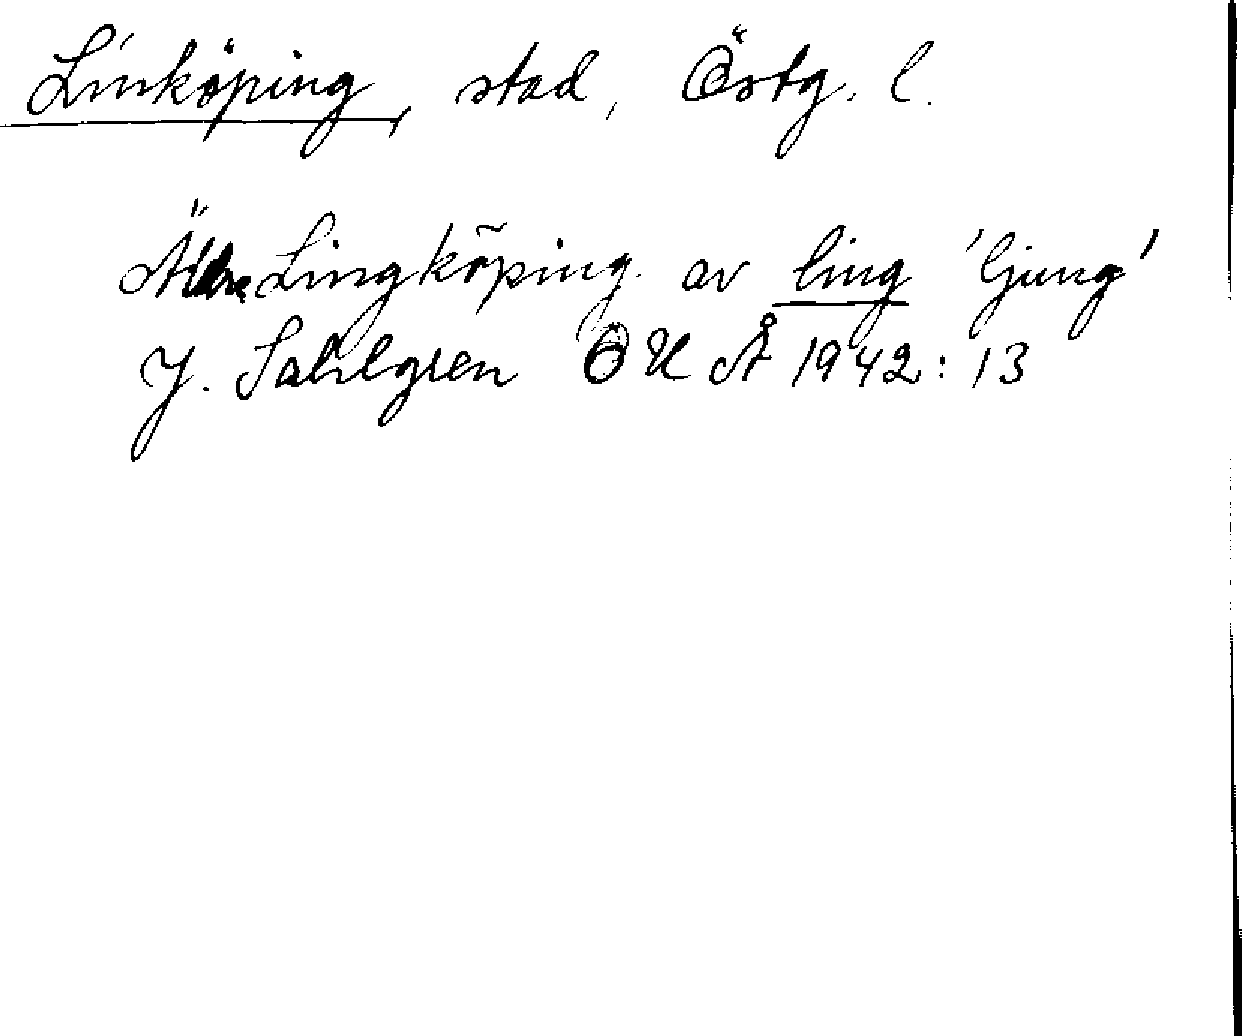 Linköping, stad, Östg. l.
Äldre Lingköping av ling 'ljung'
J. Sahlgren OUÅ 1942:13